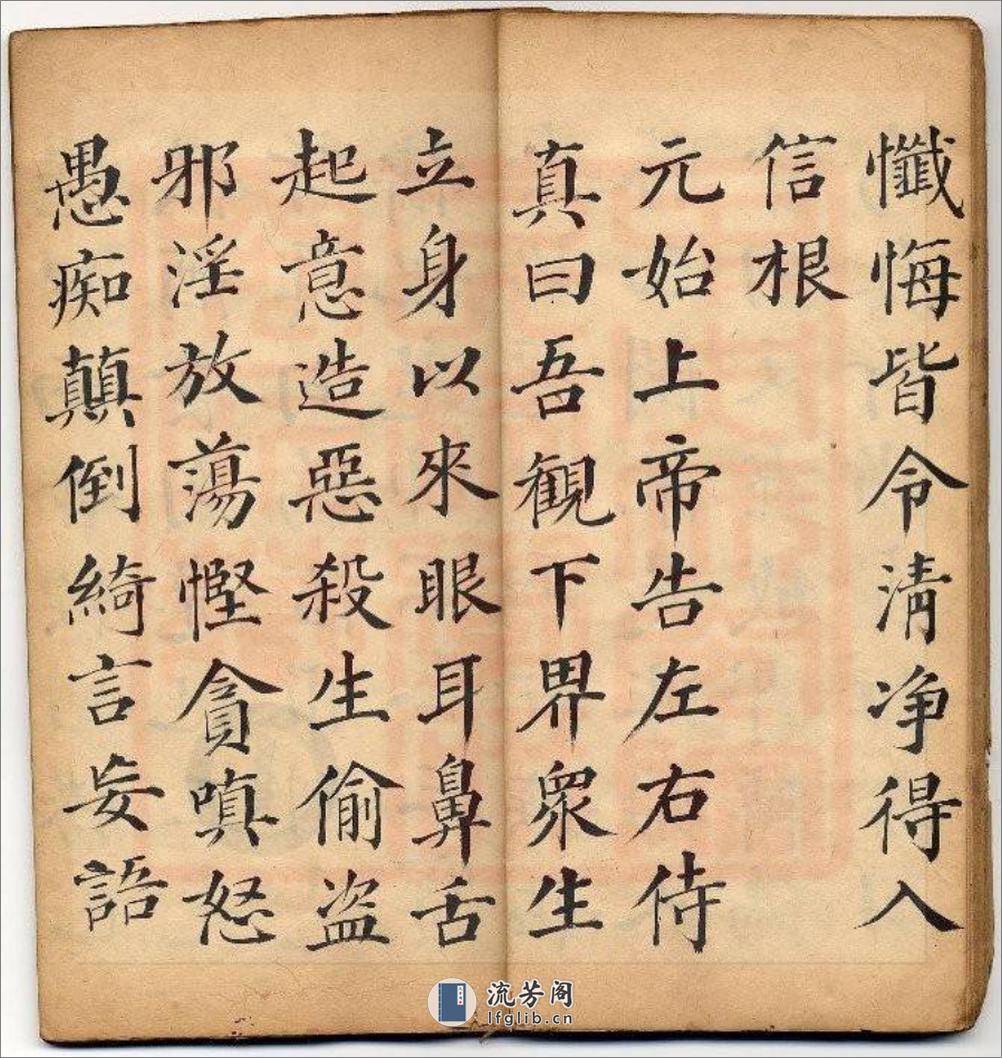 懺悔皆令清净得入
信根
元始上帝告左右侍
真曰吾觀下界衆生
立身以來眼耳鼻舌
起意造惡殺生偷盗
邪淫放蕩慳貪嗔怒
愚痴顛倒綺言妄語
流芳阁
lfglib.cn